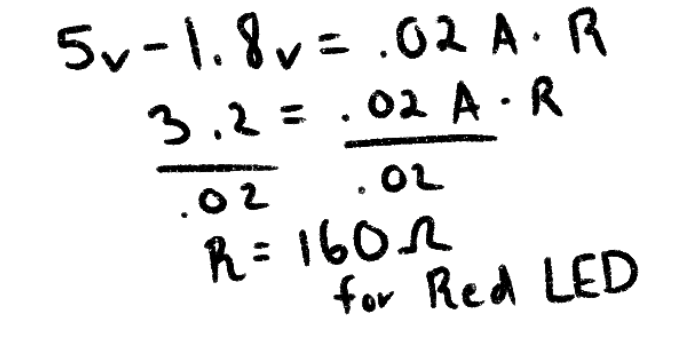 5v - 1.8v = .02 A · R
3.2 = .02 A · R
.02 .02
R = 160 Ω
for Red LED